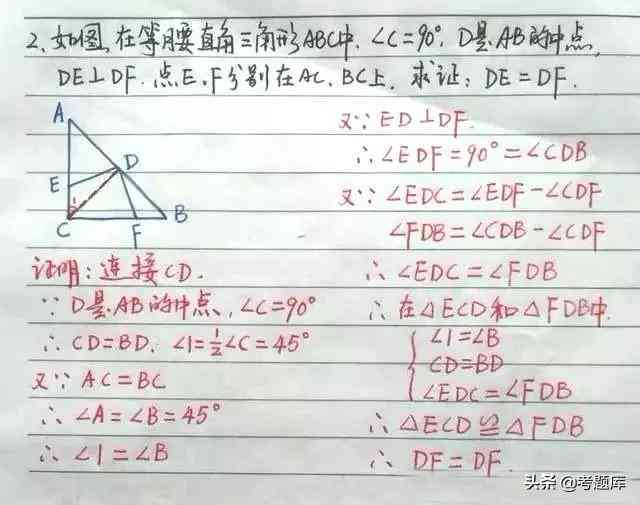 2、如图,在等腰直角三角形ABC中,∠C=90°,D是AB的中点,
DE⊥DF,点E、F分别在AC、BC上,求证:DE=DF.
A
D
E
1
C
F
B
证明:连接CD.
∵D是AB的中点,∠C=90°
∴CD=BD,∠1=½∠C=45°
又∵AC=BC
∴∠A=∠B=45°
∴∠1=∠B
又∵ED⊥DF.
∴∠EDF=90°=∠CDB
又∵∠EDC=∠EDF-∠CDF
∠FDB=∠CDB-∠CDF
∴∠EDC=∠FDB
∴在△ECD和△FDB中.
∠1=∠B
CD=BD
∠EDC=∠FDB
∴△ECD≌△FDB
∴DF=DF.
头条@考题库